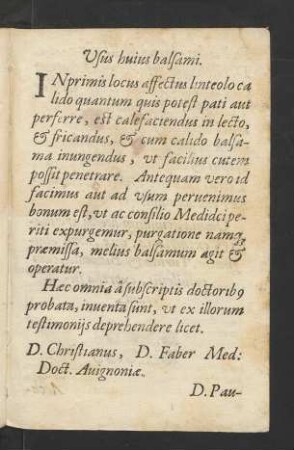 Vsus huius balsami.
INprimis locus affectus linteolo ca
lido quantum quis potest pati aut
perferre, est calefaciendus in lecto,
& fricandus, & cum calido balsa-
ma inungendus, vt facilius cutem
possit penetrare. Antequam vero id
facimus aut ad vsum peruenimus
bonum est, vt ac consilio Medidci pe-
riti expurgemur, purgatione namq;
præmissa, melius balsamum agit &
operatur.
Hæc omnia â subscriptis doctorib9
probata, inuenta sunt, vt ex illorum
testimonijs deprehendere licet.
D. Christianus, D. Faber Med:
Doct. Auignoniæ.
D. Pau-